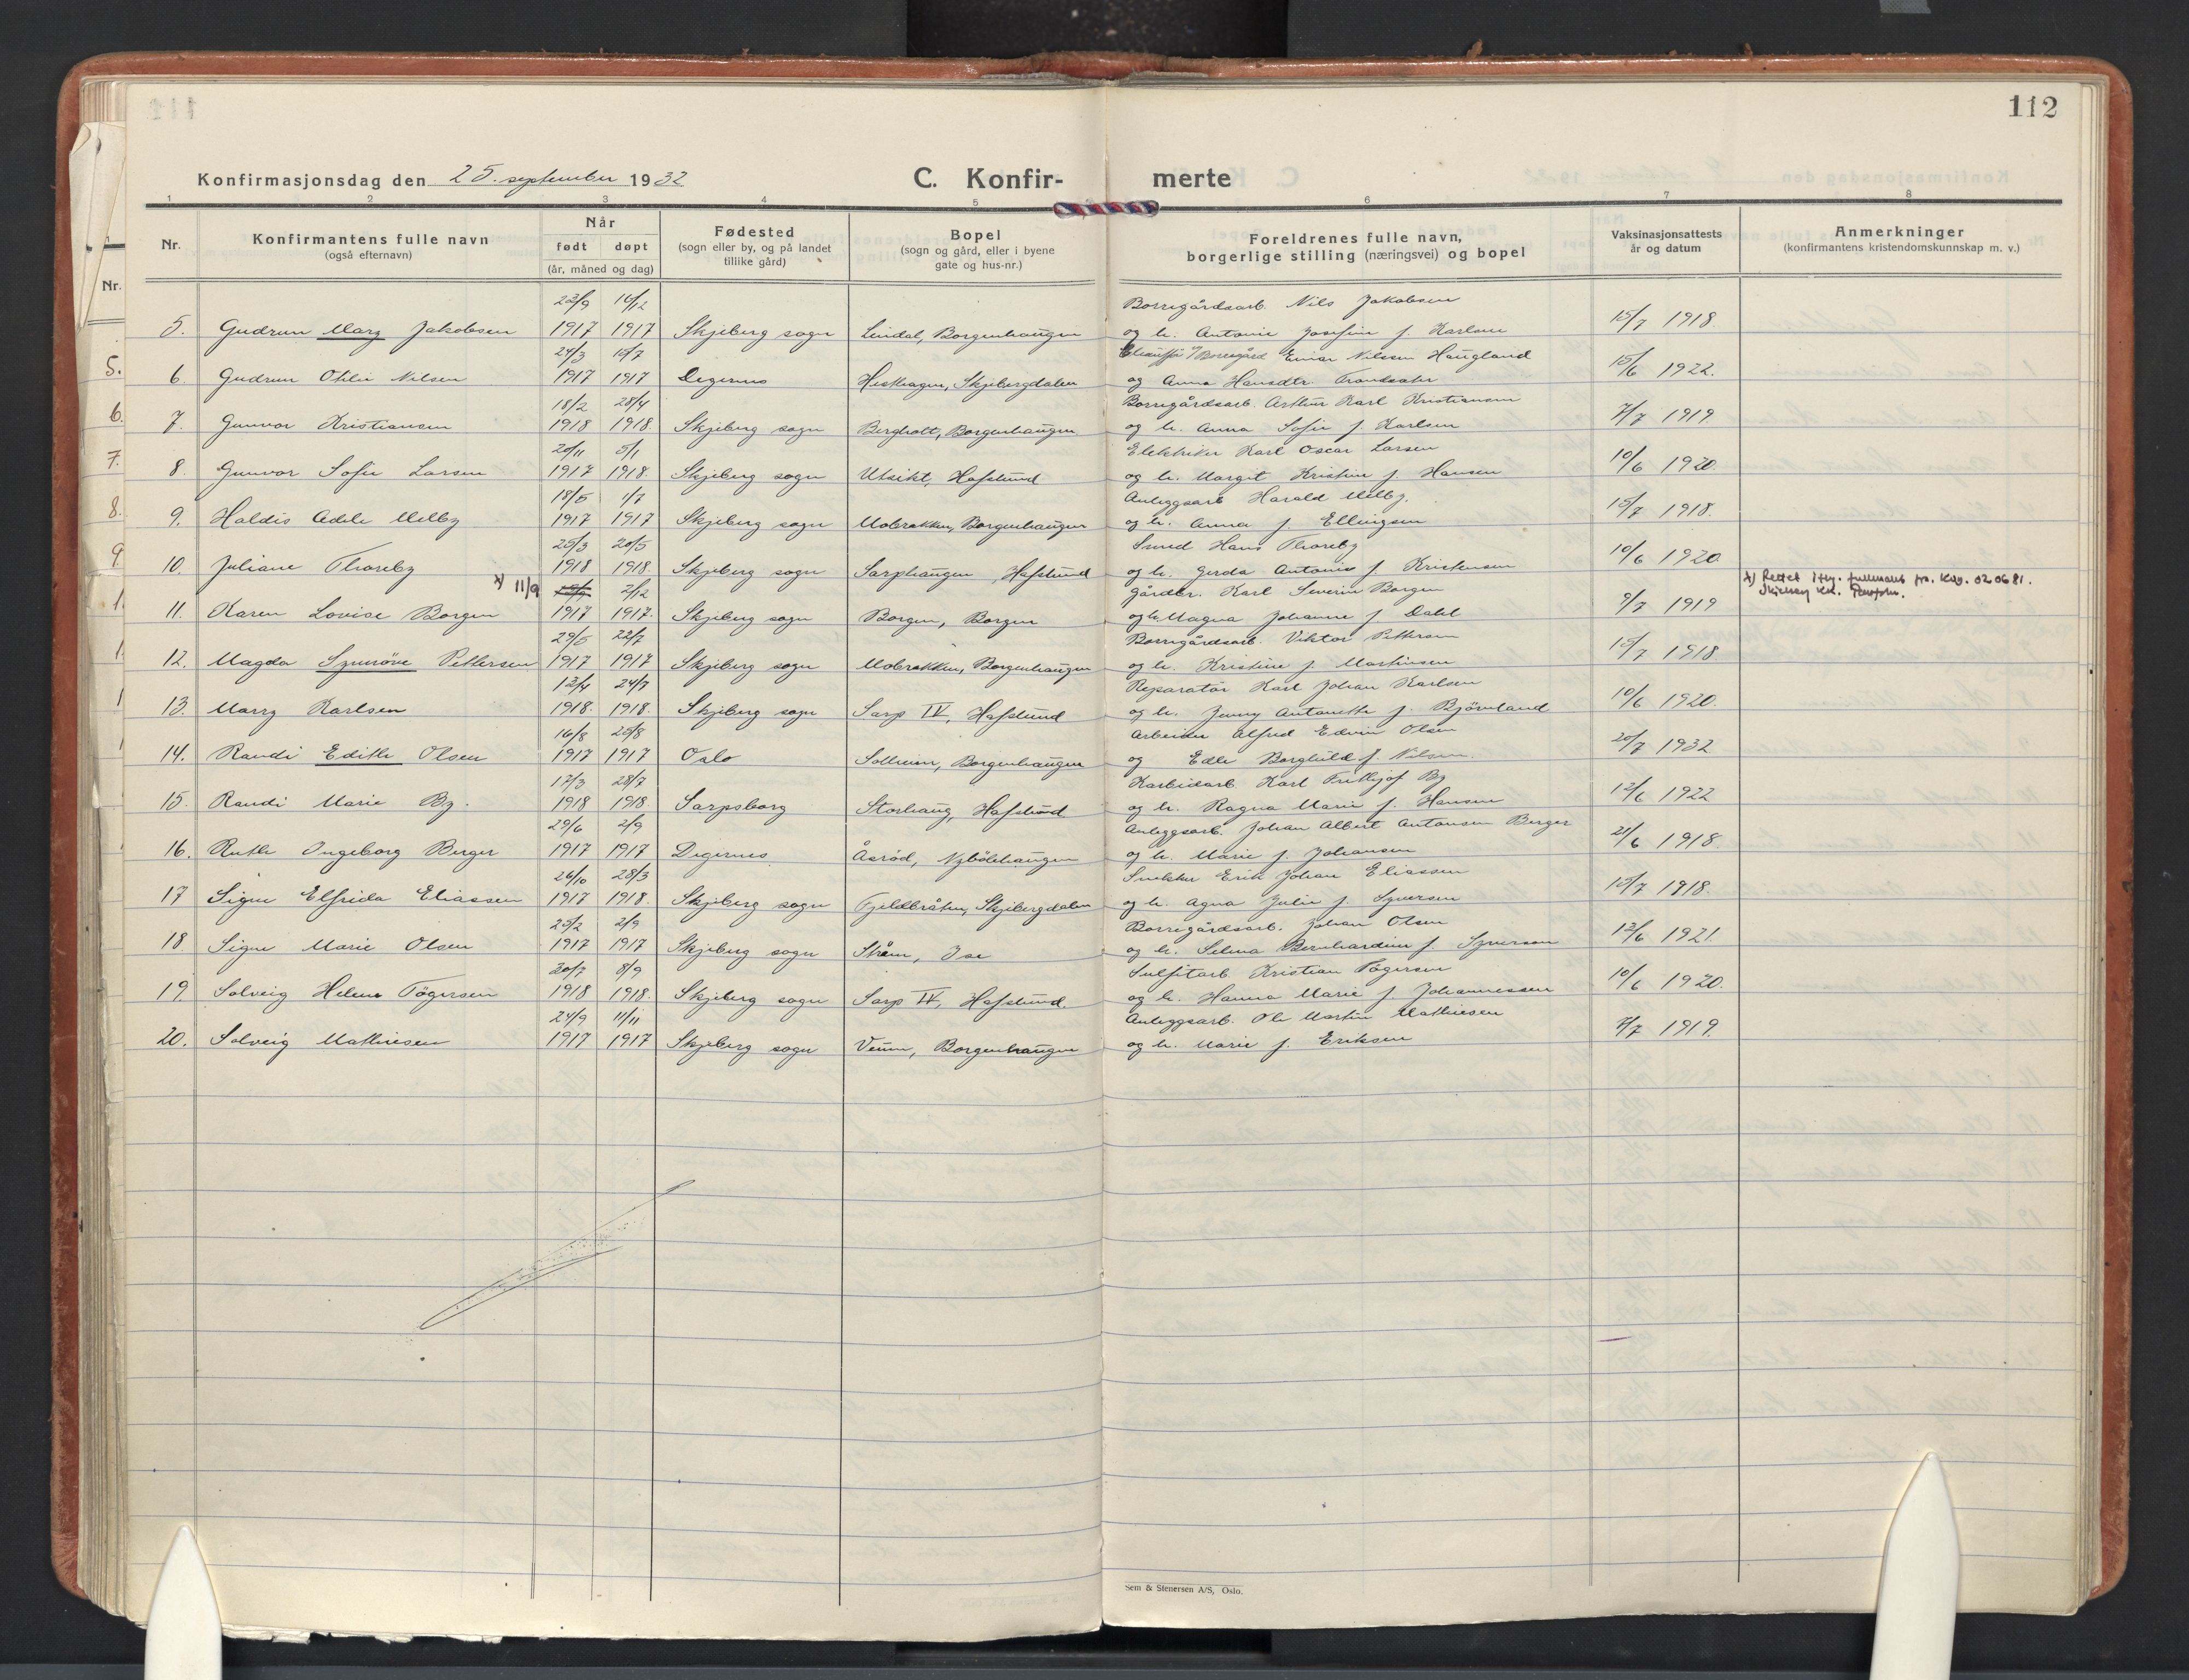 112
Konfirmasjonsdag den 25. september 1932
C. Konfir- merte
1 2 3 4 5 6 7 8
Nr. Konfirmantens fulle navn (også efternavn)
Når født døpt (år, måned og dag)
Fødested (sogn eller by, og på landet tillike gård)
Bopel (sogn og gård, eller i byene gate og hus-nr.)
Foreldrenes fulle navn, borgerlige stilling (næringsvei) og bopel
Vaksinasjonsattests år og datum
Anmerkninger (konfirmantens kristendomskunnskap m. v.)
23/9 16/12 Borregårdsarb. Nils Jakobsen
5. Gudrun Mary Jakobsen 1917 1917 Skjeberg sogn Lindal, Borgenhaugen og h. Antonie Josefine f. Karlsen 15/7 1918
24/3 15/7 Borregård Einar Nilssen Haugland
6. Gudrun Otilie Nilsen 1917 1917 Degernes Hesthagen, Skjebergdalen og Anna Hansdtr. 15/6 1922.
18/2 28/4 Borregårdsarb. Arthur Karl Kristiansen
7. Gunvor Kristiansen 1918 1918. Skjeberg sogn Bergholt, Borgenhaugen og h. Anna Sofie f. Karlsen 7/7 1919.
20/11 5/1 Elektriker Karl Oscar Larsen
8. Gunvor Sofie Larsen 1917 1918. Skjeberg sogn Utsikt, Hafslund og h. Margit Kristine f. Hansen 10/6 1920.
18/5 1/7 Anleggsarb Harald Melby.
9. Haldis Adele Melby 1917 1917 Skjeberg sogn Mobrekken, Borgenhaugen og h. Anna f. Ellingsen 15/7 1918.
25/3 20/5 Smed Hans Thoreby
10. Juliane Thoreby 1918 1918. Skjeberg sogn Sarphaugen, Hafslund og h. Gerda Antonie f. Kristensen 10/6 1920.
x) 11/9 2/12 Gårdbr. Karl Severin Borgen
x) Rettet fra. 020681.
11. Karen Lovise Borgen 1917 1917. Skjeberg sogn Borgen, Borgen og h. Magna Johanne f. Dahl 9/7 1919
29/5 22/7 Borregårdsarb. Viktor Pettersen
12. Magda Synnöve Pettersen 1917 1917 Skjeberg sogn Mobrekken, Borgenhaugen og h. Kristine f. Martinsen 15/7 1918
13/4 24/7 Reparatør Karl Johan Karlsen
13. Marry Karlsen 1918. 1918. Skjeberg sogn Sarp IV, Hafslund og h. Jenny Antonette f. Bjørnland 10/6 1920.
16/8 25/8 Arbeider Alfred Edvin Olsen
14. Randi Edith Olsen 1917 1917 Oslo Solheim, Borgenhaugen og Edle Borghild f. Nilsen. 20/7 1932
17/3 28/7 Karbidarb. Karl Frithjof By
15. Randi Marie By. 1918 1918. Sarpsborg Storhaug, Hafslund og h. Ragna Marie f. Hansen 12/6 1922
29/6 2/9 Anleggsarb. Johan Albert Antonsen Berger
16. Ruth Ingeborg Berger 1917 1917 Degernes Åsrød, Nybölehaugen og h. Marie f. Johansen 21/6 1918.
26/10 28/3 Snekker Erik Johan Eliassen
17 Signe Elfrida Eliassen 1917 1918. Skjeberg sogn Fjeldbråten, Skjebergdalen og h. Agna Julie f. Syversen 15/7 1918.
25/2 2/9 Borregårdsarb. Johan Olsen
18. Signe Marie Olsen 1917 1917 Skjeberg sogn Strøm, Ise og h. Selma Bernhardine f. Syversen 13/6 1921.
20/7 8/9 Sulfitarb. Kristian Tögersen
19. Solveig Helene Tögersen 1918 1918. Skjeberg sogn Sarp IV, Hafslund. og h. Hanna Marie f. Johannessen 10/6 1920.
24/9 11/11 Anleggsarb. Ole Martin Mathiesen
20. Solveig Mathiesen 1917 1917 Skjeberg sogn Veum, Borgenhaugen og h. Marie f. Eriksen 7/7 1919.
Sem & Stenersen A/S, Oslo.